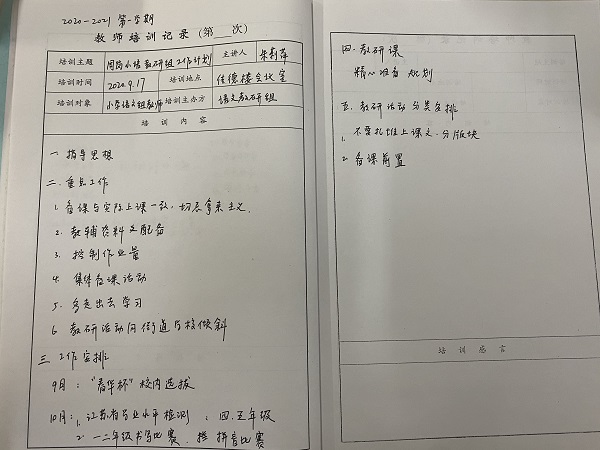 2020-2021 第一学期
教师培训记录（第 次）
培训主题 小语教研组工作计划 主讲人
培训时间 2020.9.17 培训地点 佳德楼会议室
培训对象 小学语文组教师 培训主办方 语文教研组
培训内容
一. 指导思想
二. 重点工作
1. 备课与实际上课一致，切忌拿来主义.
2. 教辅资料及配备
3. 控制作业量
4. 集体备课活动
5. 多走出去学习
6. 教研活动向街道与校倾斜
三 工作安排:
9月: "春华杯"校内选拔
10月: 1. 江苏省学业水平检测: 四.五年级
2 一二年级书写比赛. 拼音比赛
四. 教研课
精心准备 规划
五. 教研活动分类安排
1. 不要扎堆上课文.分版块
2. 备课前置
培训感言